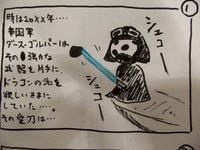 1
時は20XX年‥‥
帝国軍
ダース・ゴルパーは
その強力な
武器を片手に、
ドラゴンの名を
欲しいままに
していた‥‥。
その愛刀は…
シュコー
シュコー